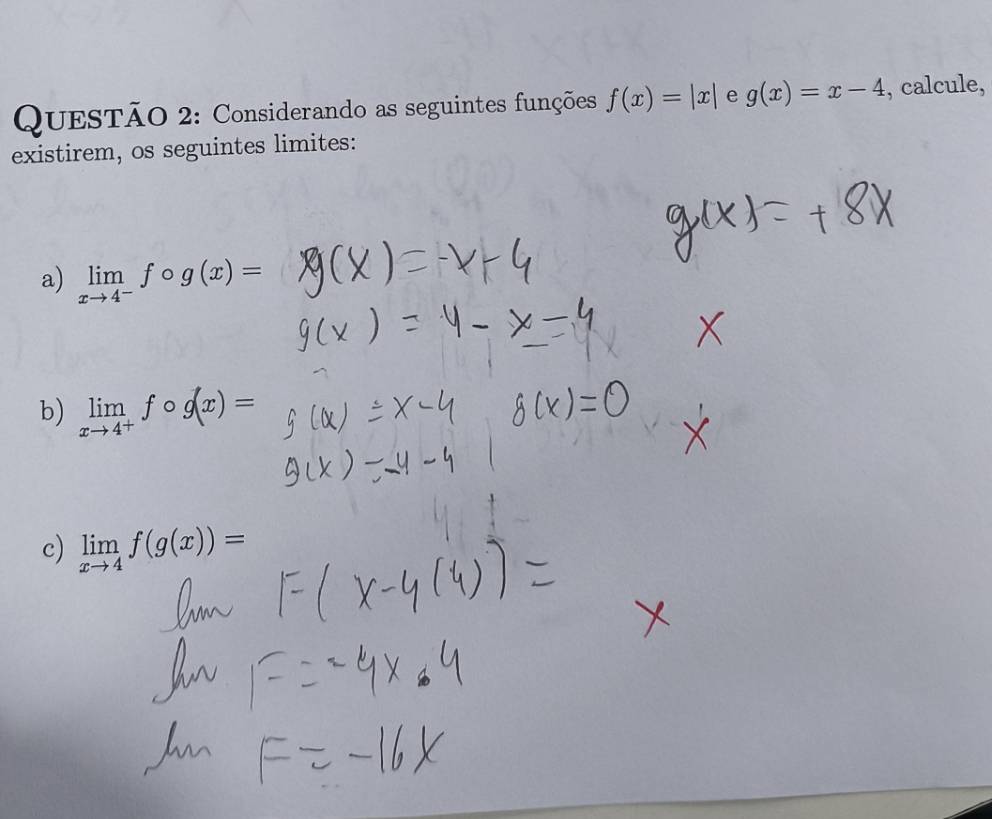 QUESTÃO 2: Considerando as seguintes funções f(x) = |x| e g(x) = x − 4, calcule,
existirem, os seguintes limites:
g(x) = + 8x
a) lim x→4⁻ f ∘ g(x) = g(x) = -x + 4
g(x) = 4 - x = 4x
X
b) lim x→4⁺ f ∘ g(x) = g(x) = x - 4 g(x) = 0
g(x) = 4 - 4
X
c) lim x→4 f(g(x)) =
lim F(x-4(4)) =
X
lim F = -4x . 4
lim F = -16x